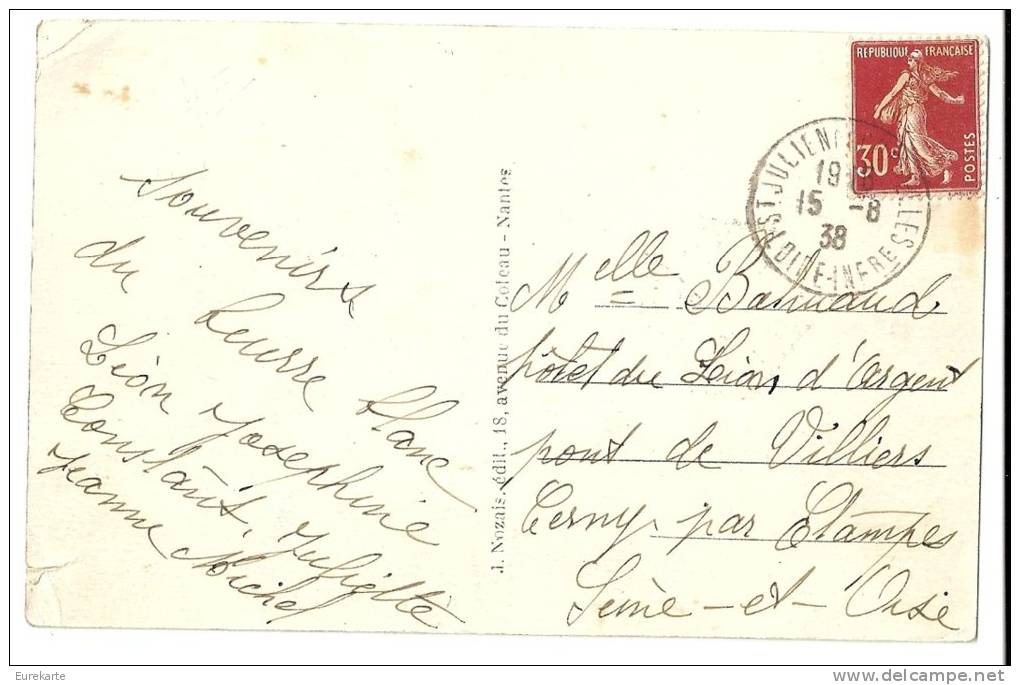 Souvenirs
du beurre blanc
Léon Josephine
Constant,
Jeanne Michel
J. Nozais, édit., 18, avenue du Coteau - Nantes
REPUBLIQUE FRANÇAISE
30c
POSTES
ST JULIEN
15 -8
38
LOIRE-INFRE
Melle
hôtel du Lion d'argent
pont de Villiers
Cerny par Etampes
Seine-et-Oise
Eurekarte
www.delcampe.net